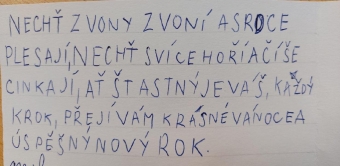 NECHŤ ZVONY ZVONÍ A SRDCE
PLESAJÍ, NECHŤ SVÍCE HOŘÍ A ČÍŠE
CINKAJÍ, AŤ ŠTASTNÝ JE VÁŠ, KAŽDÝ
KROK, PŘEJÍ VÁM KRÁSNÉ VÁNOCE A
ÚSPĚŠNÝ NOVÝ ROK.